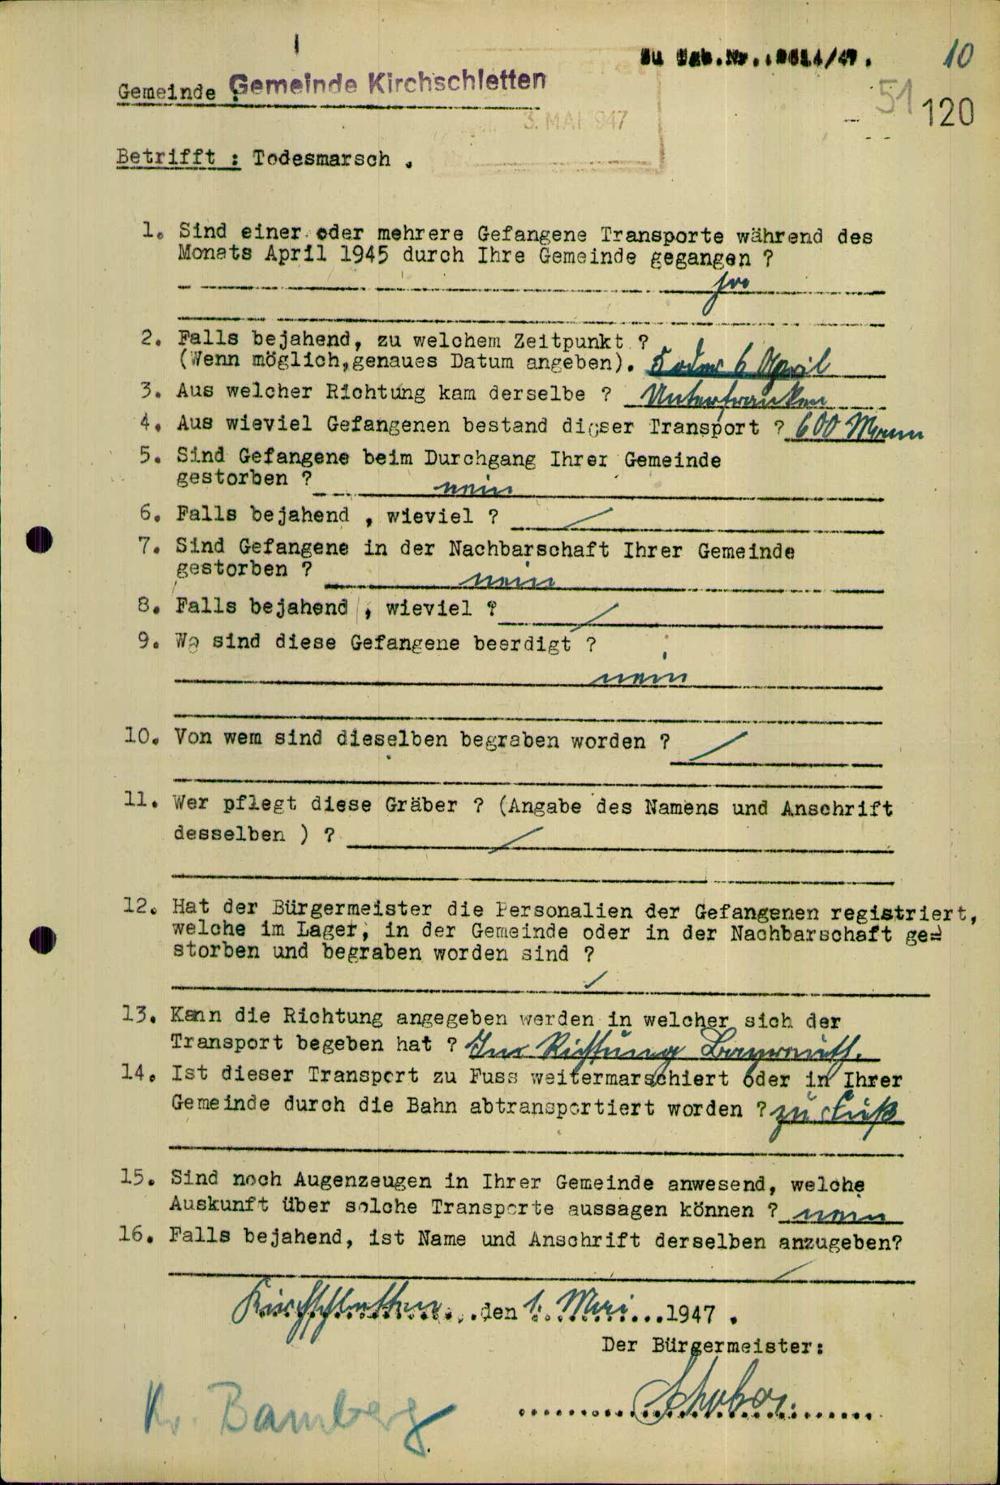 10
Zu Tgb.Nr.
Gemeinde Gemeinde Kirchschletten
51 120
3. MAI 1947
Betrifft : Todesmarsch .
1. Sind einer oder mehrere Gefangene Transporte während des
Monats April 1945 durch Ihre Gemeinde gegangen ?
ja
2. Falls bejahend, zu welchem Zeitpunkt ?
(Wenn möglich,genaues Datum angeben). 5 oder 6 April
3. Aus welcher Richtung kam derselbe ? Unterfranken
4. Aus wieviel Gefangenen bestand dieser Transport ? 600 Mann
5. Sind Gefangene beim Durchgang Ihrer Gemeinde
gestorben ? nein
6. Falls bejahend , wieviel ? /
7. Sind Gefangene in der Nachbarschaft Ihrer Gemeinde
gestorben ? nein
8. Falls bejahend , wieviel ? /
9. Wo sind diese Gefangene beerdigt ?
nein
10. Von wem sind dieselben begraben worden ? /
11. Wer pflegt diese Gräber ? (Angabe des Namens und Anschrift
desselben ) ? /
12. Hat der Bürgermeister die Personalien der Gefangenen registriert,
welche im Lager, in der Gemeinde oder in der Nachbarschaft ge=
storben und begraben worden sind ?
/
13. Kann die Richtung angegeben werden in welcher sich der
Transport begeben hat ? In Richtung Bayreuth.
14. Ist dieser Transport zu Fuss weitermarschiert oder in Ihrer
Gemeinde durch die Bahn abtransportiert worden ? zu Fuß
15. Sind noch Augenzeugen in Ihrer Gemeinde anwesend, welche
Auskunft über solche Transporte aussagen können ? nein
16. Falls bejahend, ist Name und Anschrift derselben anzugeben?
/
Kirchschletten, den 1. Mai 1947 .
Der Bürgermeister:
Kr. Bamberg